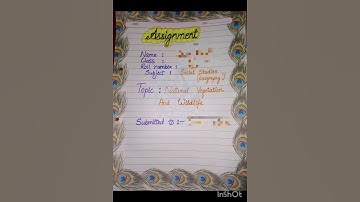 Assignment
Name :
Class :
Roll Number :
Subject : Social Studies
(Geography)
Topic : Natural Vegetation
And Wildlife
Submitted To :-
InShOt